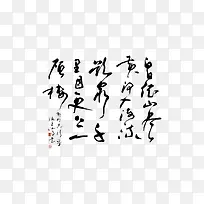 白依山尽
黄河入海流
欲穷千
里目更上一
层楼